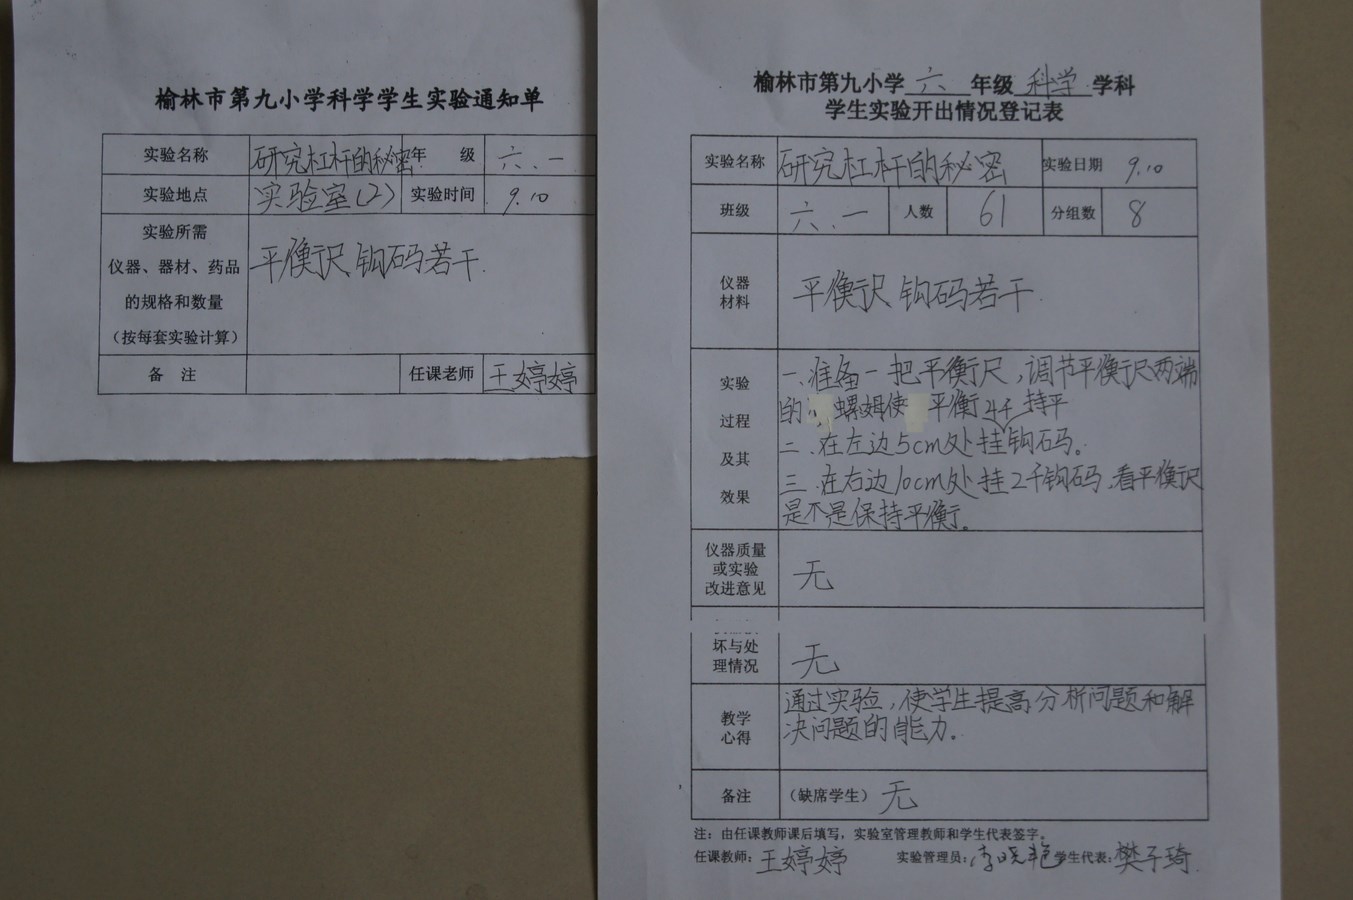 榆林市第九小学科学学生实验通知单
实验名称 研究杠杆的秘密 年 级 六.一
实验地点 实验室(2) 实验时间 9.10
实验所需
仪器、器材、药品
的规格和数量
(按每套实验计算)
平衡尺 钩码若干.
备 注 任课老师 王婷婷
榆林市第九小学 六 年级 科学 学科
学生实验开出情况登记表
实验名称 研究杠杆的秘密 实验日期 9.10
班级 六.一 人数 61 分组数 8
仪器
材料
平衡尺 钩码若干.
实验
过程
及其
效果
一.准备一把平衡尺,调节平衡尺两端
的 螺姆使 平衡 持平
二.在左边5cm处挂 钩码。
三.在右边10cm处挂2千钩码,看平衡尺
是不是保持平衡。
仪器质量
或实验
改进意见
无
坏与处
理情况
无
教学
心得
通过实验,使学生提高分析问题和解
决问题的能力。
备注 (缺席学生) 无
注:由任课教师课后填写,实验室管理教师和学生代表签字。
任课教师:王婷婷 实验管理员:李晓艳 学生代表:樊子琦